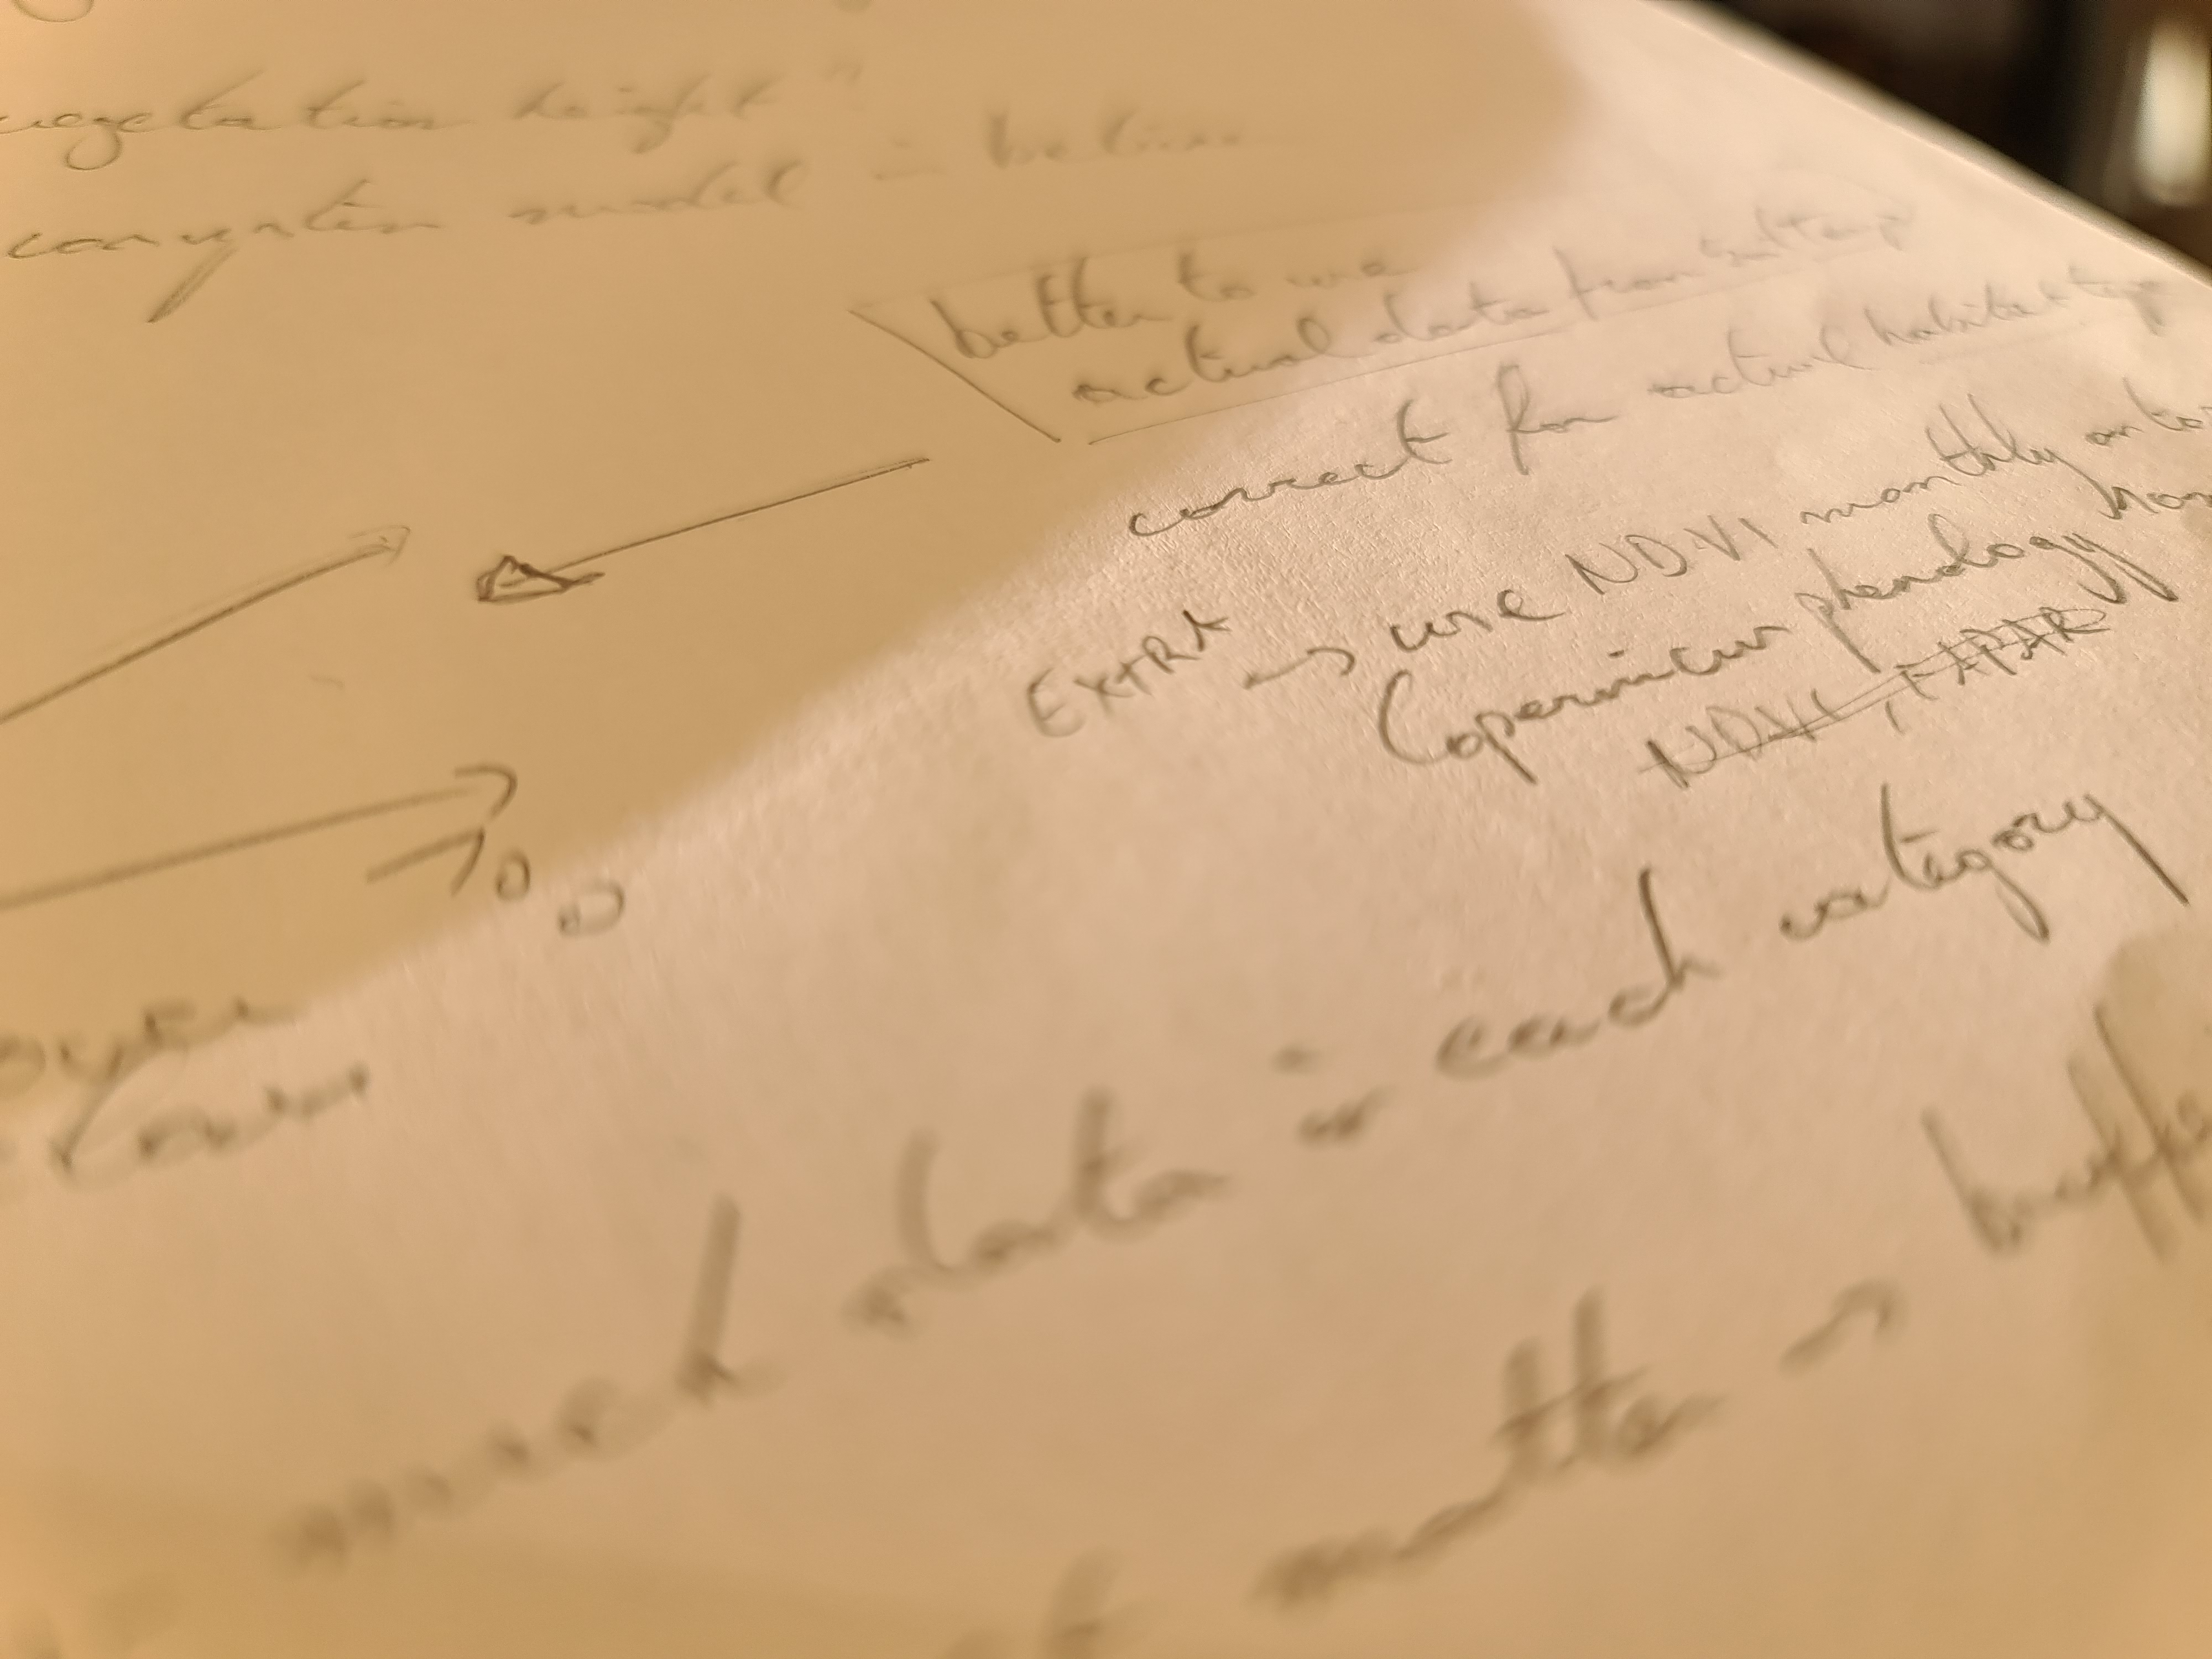 vegetation height
model - below
better to use
actual data from
correct for actual habitat type
EXTRA → use NDVI monthly
Copernicus phenology
NDVI, FAPAR
much data in each category
matter → buffe